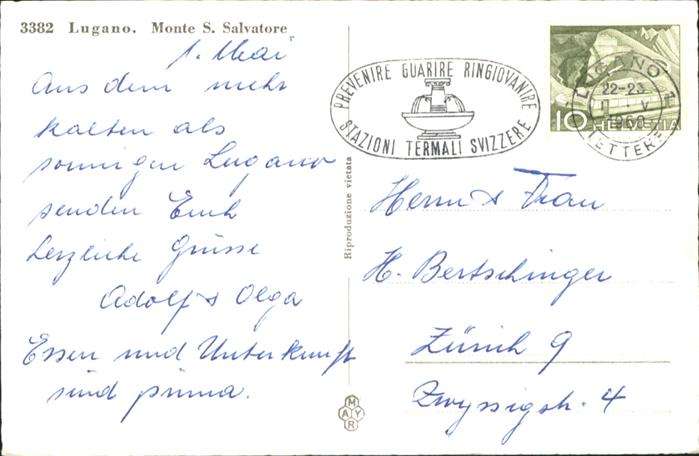 3382 Lugano. Monte S. Salvatore
1. Mai
Aus dem mehr
kalten als
sonnigen Lugano
senden Euch
herzliche Grüsse
Adolf & Olga
Essen und Unterkunft
sind prima.
Riproduzione vietata
MAYR
PREVENIRE GUARIRE RINGIOVANIRE
STAZIONI TERMALI SVIZZERE
LUGANO 1
22-23
V
1960
LETTERE
10 HELVETIA
Herrn & Frau
H. Bertschinger
Zürich 9
Zwyssigstr. 4